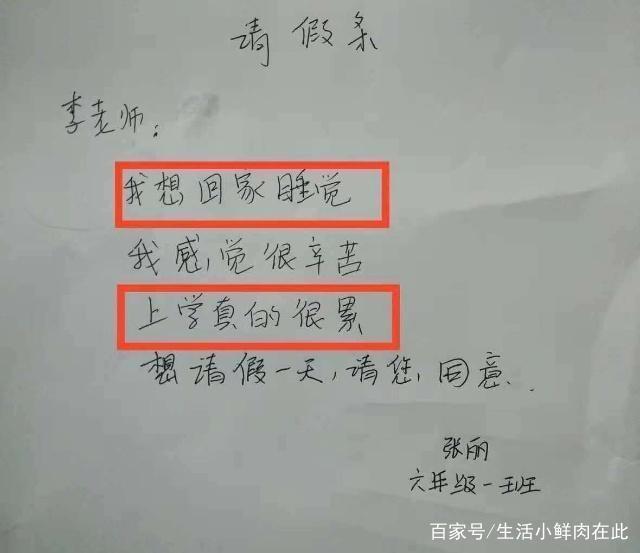 请假条
李老师：
我想回家睡觉
我感觉很辛苦
上学真的很累
想请假一天，请您同意.
张丽
六年级一班
百家号/生活小鲜肉在此